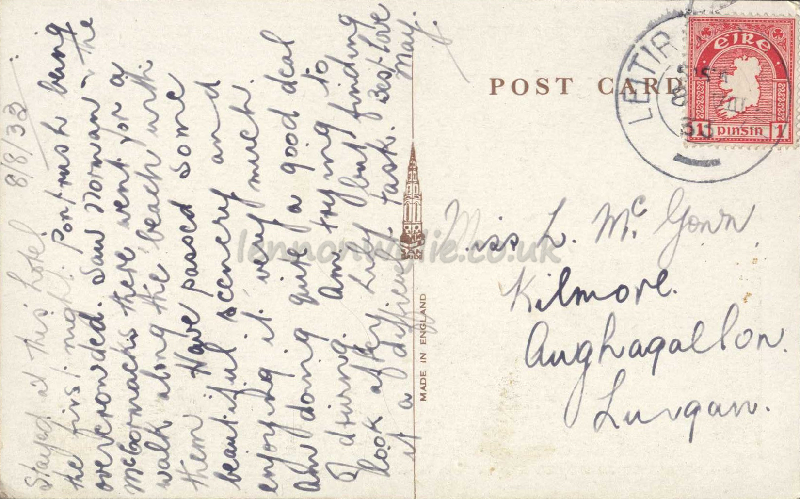 Stayed at this hotel 8/8/33
the first night Portrush being
overcrowded. Saw Norman & the
McCormacks there went for a
walk along the beach with
them Have passed some
beautiful scenery and
enjoying it very much.
Am doing quite a good deal
of driving. Am trying to
look after Lily but finding
it a difficult task. Best love
May.
POST CARD
LEITIR
EIRE
1 PINSIN 1
Miss L. McGown
Kilmore.
Aughagallon.
Lurgan.
MADE IN ENGLAND
lennonwylie.co.uk